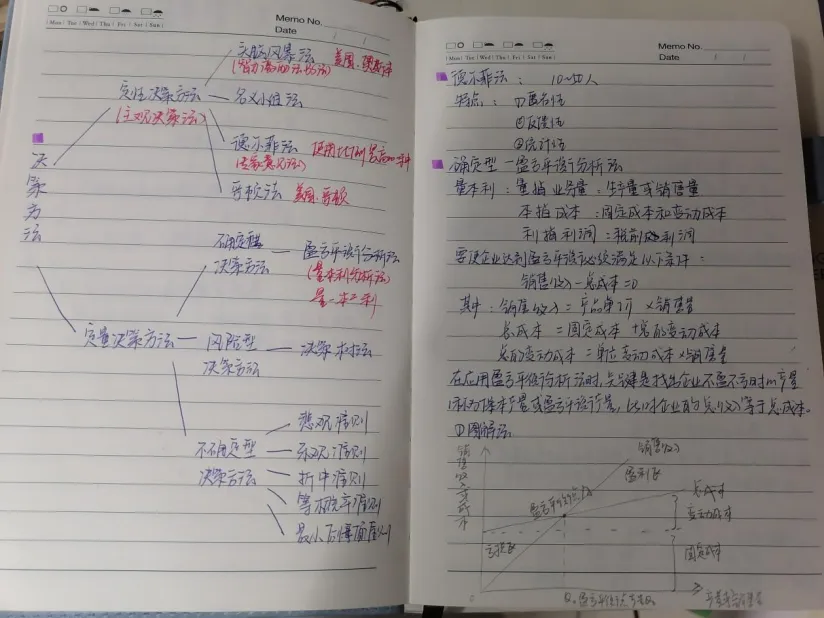 Memo No.
Mon Tue Wed Thu Fri Sat Sun
Date / /
头脑风暴法 美国·奥斯本
(智力激励法)
定性决策方法 名义小组法
(主观决策法)
德尔菲法 使用比例最高的一种
(专家意见法)
哥顿法 美国·哥顿
决策方法
盈亏平衡分析法
决策方法
(量本利分析法)
量-本-利
定量决策方法 风险型 决策树法
决策方法
悲观准则
不确定型 乐观准则
决策方法 折中准则
等概率准则
最小后悔值准则
Memo No.
Mon Tue Wed Thu Fri Sat Sun
Date / /
德尔菲法: 10~50人
特点: ①匿名性
②反馈性
③统计性
确定型-盈亏平衡分析法
量本利: 量指业务量:生产量或销售量
本指成本:固定成本和变动成本
利指利润:税前利润
要使企业达到盈亏平衡必须满足以下条件:
销售收入-总成本=0
其中: 销售收入=产品单价×销售量
总成本=固定成本+总的变动成本
总的变动成本=单位变动成本×销售量
在应用盈亏平衡分析法时,关键是找出企业不盈不亏时的产量
(称为保本产量或盈亏平衡产量,此时企业的总收入等于总成本。
①图解法
销售收入
盈利区
销售收入或成本
总成本
盈亏平衡点A
变动成本
亏损区
固定成本
0